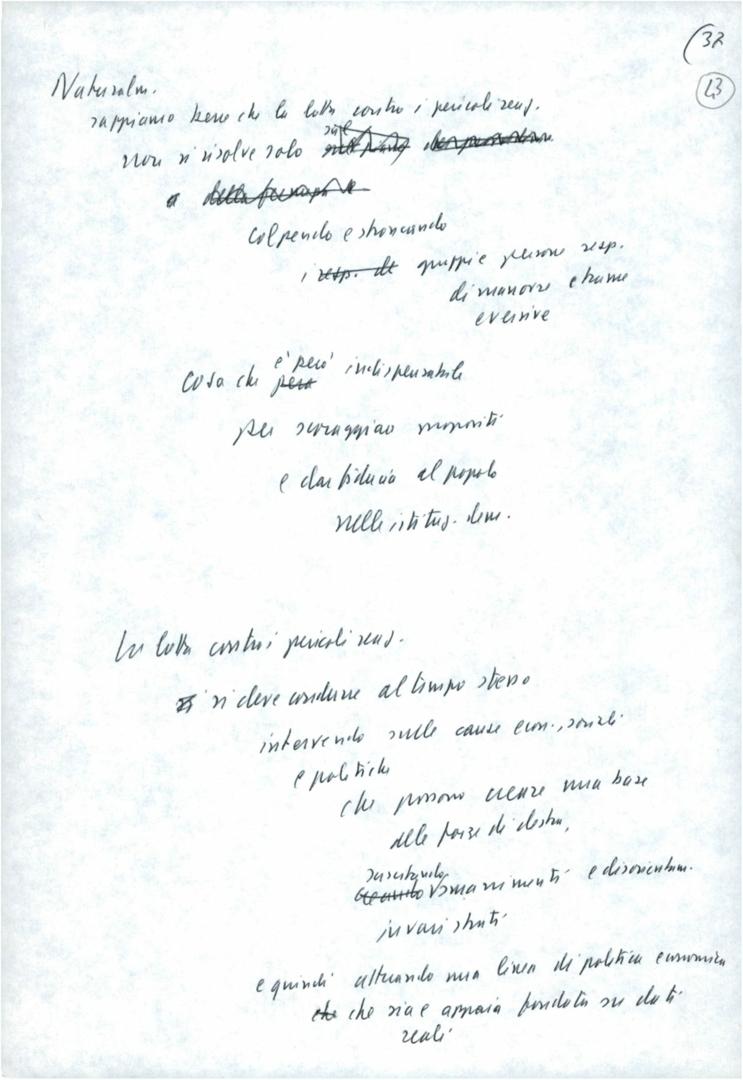 (32
13
Naturalm.
sappiamo bene che la lotta contro i pericoli reaz.
non si risolve solo
colpendo e stroncando
i resp. di gruppi e persone resp.
di manovre e trame
eversive
cosa che è però indispensabile
però
per scoraggiare propositi
e dar fiducia al popolo
nelle istituz. dem.
La lotta contro i pericoli reaz.
si deve condurre al tempo stesso
intervenendo sulle cause econ., sociali
e politiche
che possono creare una base
alle forze di destra,
suscitando
creando smarrimenti e disorientam.
in vari strati
e quindi attuando una linea di politica economica
che che sia e appaia fondata su dati
reali